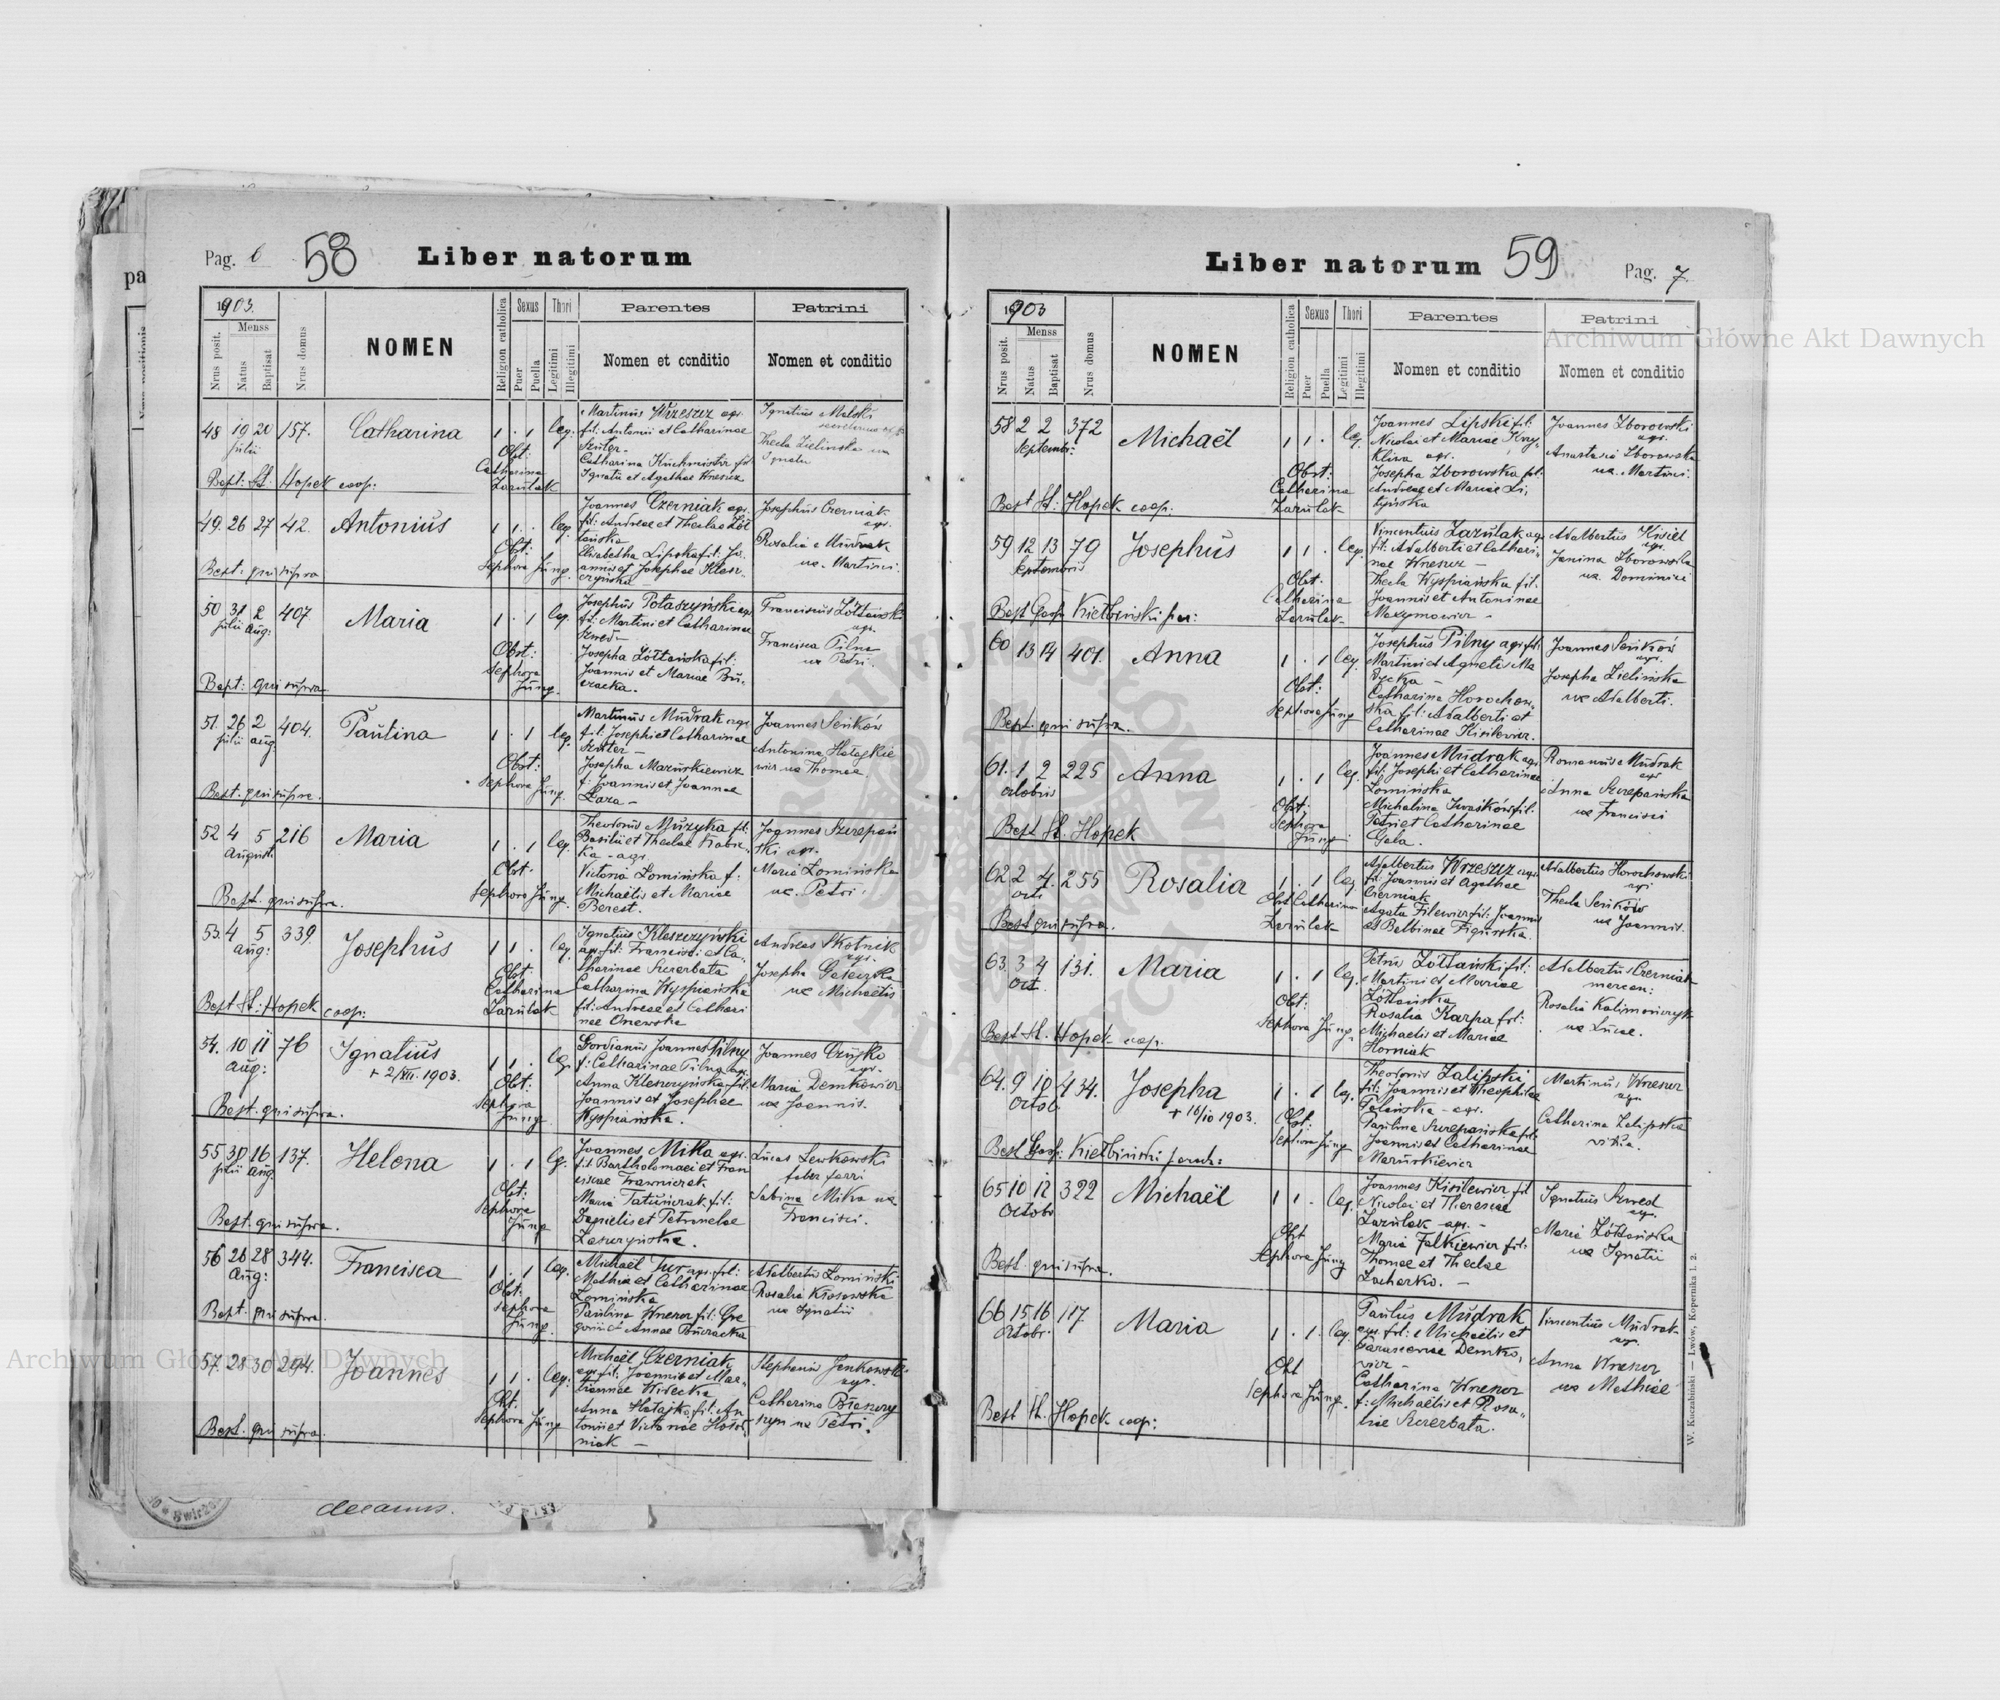 Pag. 6
58
Liber natorum
1903.
Nrus posit.
Menss
Natus
Baptisat
Nrus domus
NOMEN
Religion catholica
Sexus
Puer
Puella
Thori
Legitimi
Illegitimi
Parentes
Nomen et conditio
Patrini
Nomen et conditio
48 19 20 157. Catharina 1 . 1 leg.
Julii
Martinus Wreszcz agr.
fil: Antonii et Catharinae
Szuter -
Catharina Kuchmistr fil
Ignatii et Agathae Wreszcz
Ignatius Malski
Thecla Zielinska ux
Ignatii
Obst: Catharina Zazulak
Bapt: St. Hopek coop:
49. 26 27 42. Antonius 1 1 . leg.
Joannes Czerniak agr.
fil: Andreae et Theclae Żół
tańska
Elisabetha Lipska fil: Jo,
annis et Josephae Klesz,
czyńska -
Josephus Czerniak
agr.
Rosalia Mudrak
ux. Martini.
Obst: Sephora Jung.
Bapt. qui supra
50 31 2 407. Maria 1 . 1 leg.
Julii Aug:
Josephus Potaszyński agr
fil: Martini et Catharinae
Szwed -
Josepha Żółtańska fil:
Joannis et Mariae Bu,
czacka.
Franciscus Żółtański
agr.
Francisca Pilna
ux Petri.
Obst: Sephora Jung.
Bapt: qui supra
51. 26 2 404. Paulina 1 . 1 leg.
Julii aug
Martinus Mudrak agr.
fil: Josephi et Catharinae
Szuter -
Josepha Mazurkiewicz
f: Joannis et Joannae
Łaza -
Joannes Seńków
Antonina Hatajkie
wicz ux Thomae.
Obst: Sephora Jung.
Bapt. qui supra.
52 4 5 216 Maria 1 . 1 leg.
Augusti
Theodorus Muzyka fil:
Basilii et Theclae
ka - agr.
Victoria Łomińska f:
Michaëlis et Mariae
Berest.
Joannes Szczepań
ski agr.
Maria Łomińska
ux. Petri.
Obst: Sephora Jung.
Bapt. qui supra.
53. 4 5 339. Josephus 1 1 . leg.
aug:
Ignatius Kleszczyński
agr. fil: Francisci et Ca,
tharinae Szczerbata
Catharina Wyspiańska
fil: Andreae et Cathari
nae Onewska
Andreas Skotnik
agr.
Josepha Gateczka
ux Michaëlis
Obst: Catharina Zazulak
Bapt St: Hopek coop:
54. 10 11 76 Ignatius 1 1 . leg
aug:
+ 2/XII. 1903.
Gordianus Joannes Pilny
f: Catharinae Pilna agr.
Anna Kleszczyńska fil:
Joannis et Josephae
Wyspiańska.
Joannes Czujko
agr.
Maria Demkowicz
ux Joannis.
Obst: Sephora Jung
Bapt. qui supra.
55 30 16 137. Helena 1 . 1 leg.
Julii aug.
Joannes Mika agr.
fil Bartholomaei et Fran
ciscae Trawniczek.
Maria Tatuńczak fil:
Danielis et Petronelae
Zaszczyńska.
Lucas Lewkowski
faber ferri
Sabina Mika ux
Francisci.
Obst: Sephora Jung
Bapt. qui supra.
56 26 28 344. Francisca 1 . 1 leg.
Aug:
Michaël Tur agr. fil:
Mathiae et Catharinae
Łomińska
Paulina Wreszcz fil: Gre
gorii et Annae Buczacka
Adalbertus Łomiński
Rosalia Kłosowska
ux Ignatii
Obst: Sephora Jung.
Bapt. qui supra.
57. 28 30 294. Joannes 1 1 . leg.
Michaël Czerniak
agr fil: Joannis et Mar,
Anna Hatajko fil: An
tonii et Victoriae
niak -
Stephanus Jankowski
agr.
Catharina
ux Petri.
Obst: Sephora Jung
Bapt. qui supra.
decanus.
Liber natorum
59
Pag. 7.
1903
Nrus posit.
Menss
Natus
Baptisat
Nrus domus
NOMEN
Religion catholica
Sexus
Puer
Puella
Thori
Legitimi
Illegitimi
Parentes
Nomen et conditio
Patrini
Nomen et conditio
58 2 2 372 Michaël 1 1 . leg.
Septembr:
Joannes Lipski fil:
Nicolai et Mariae Kry,
kliwa agr.
Josepha Zborowska fil:
Andreae et Mariae Li,
tyńska
Joannes Zborowski
agr.
Anastasia Zborowska
ux. Martini.
Obst: Catharina Zazulak
Bapt St: Hopek coop.
59 12 13 79 Josephus 1 1 . leg.
Septembris
Vincentius Zazulak agr
fil: Adalberti et Cathari,
nae Wreszcz -
Thecla Wyspiańska fil.
Joannis et Antoninae
Maxymowicz -
Adalbertus Kisiel
agr.
Janina Zborowska
ux. Dominici
Obst. Catharina Zazulak
Bapt Kiełbiński par:
60 13 14 401. Anna 1 . 1 leg.
Josephus Pilny agr fil.
Martini et Agnetis Mu
zyczka -
Catharina Horochow,
ska fil: Adalberti et
Catharinae Kisilewicz.
Joannes Seńków
agr.
Josepha Zielińska
ux Adalberti.
Obst: Sephora Jung
Bapt. qui supra.
61. 1 2 225 Anna 1 . 1 leg.
Octobris
Joannes Mudrak agr
fil: Josephi et Catharinae
Łomińska
Michalina Iwaśków fil:
Petri et Catharinae
Gala.
Romanus Mudrak
agr
Anna Szczepańska
ux Francisci
Obst: Sephora Jung
Bapt St. Hopek
62 2 4. 255 Rosalia 1 . 1 leg
Oct
Adalbertus Wrzeszcz agr.
fil: Joannis et Agathae
Czerniak
Agata Filewicz fil: Joannis
et Balbinae Figurska.
Adalbertus Horochowski
agr
Thecla Seńków
ux Joannis.
Obst Catharina Zazulak
Bapt qui supra.
63. 3 4 131. Maria 1 . 1 leg.
Oct.
Petrus Żółtański fil:
Martini et Mariae
Żółtańska
Rosalia Karpa fil:
Michaelis et Mariae
Horniak
Adalbertus Czerniak
mercan:
Rosalia Kalimończyk
ux Lucae.
Obst: Sephora Jung.
Bapt St. Hopek coop.
64. 9 10 434. Josepha 1 . 1 leg.
Octob.
+ 16/10 1903.
Theodorus Zalipski
fil: Joannis et Theophilae
Telińska - agr.
Paulina Szczepańska fil.
Joannis et Catharinae
Mazurkiewicz
Martinus Wreszcz
agr
Catharina Zalipska
vidua.
Obst: Sephora Jung
Bapt Kiełbiński paroch:
65 10 12 322 Michaël 1 1 . leg.
Octobr
Joannes Kisilewicz fil
Nicolai et Theresiae
Zazulak - agr. -
Maria Falkiewicz fil:
Thomae et Theclae
Zacharko. -
Ignatius Szwed
agr.
Maria Żółtańska
ux Ignatii
Obst Sephora Jung
Bapt. qui supra.
66 15 16 117. Maria 1 . 1. leg.
Octobr.
Paulus Mudrak
agr. fil: Michaëlis et
Parasceviae Demko,
wicz -
Catharina Wreszcz
f: Michaëlis et Rosa,
liae Szczerbata.
Vincentius Mudrak
agr.
Anna Wreszcz
ux Mathiae
Obst Sephora Jung.
Bapt St. Hopek coop:
W. Kuczabiński — Lwów, Kopernika l. 2.
Archiwum Główne Akt Dawnych
Archiwum Główne Akt Dawnych